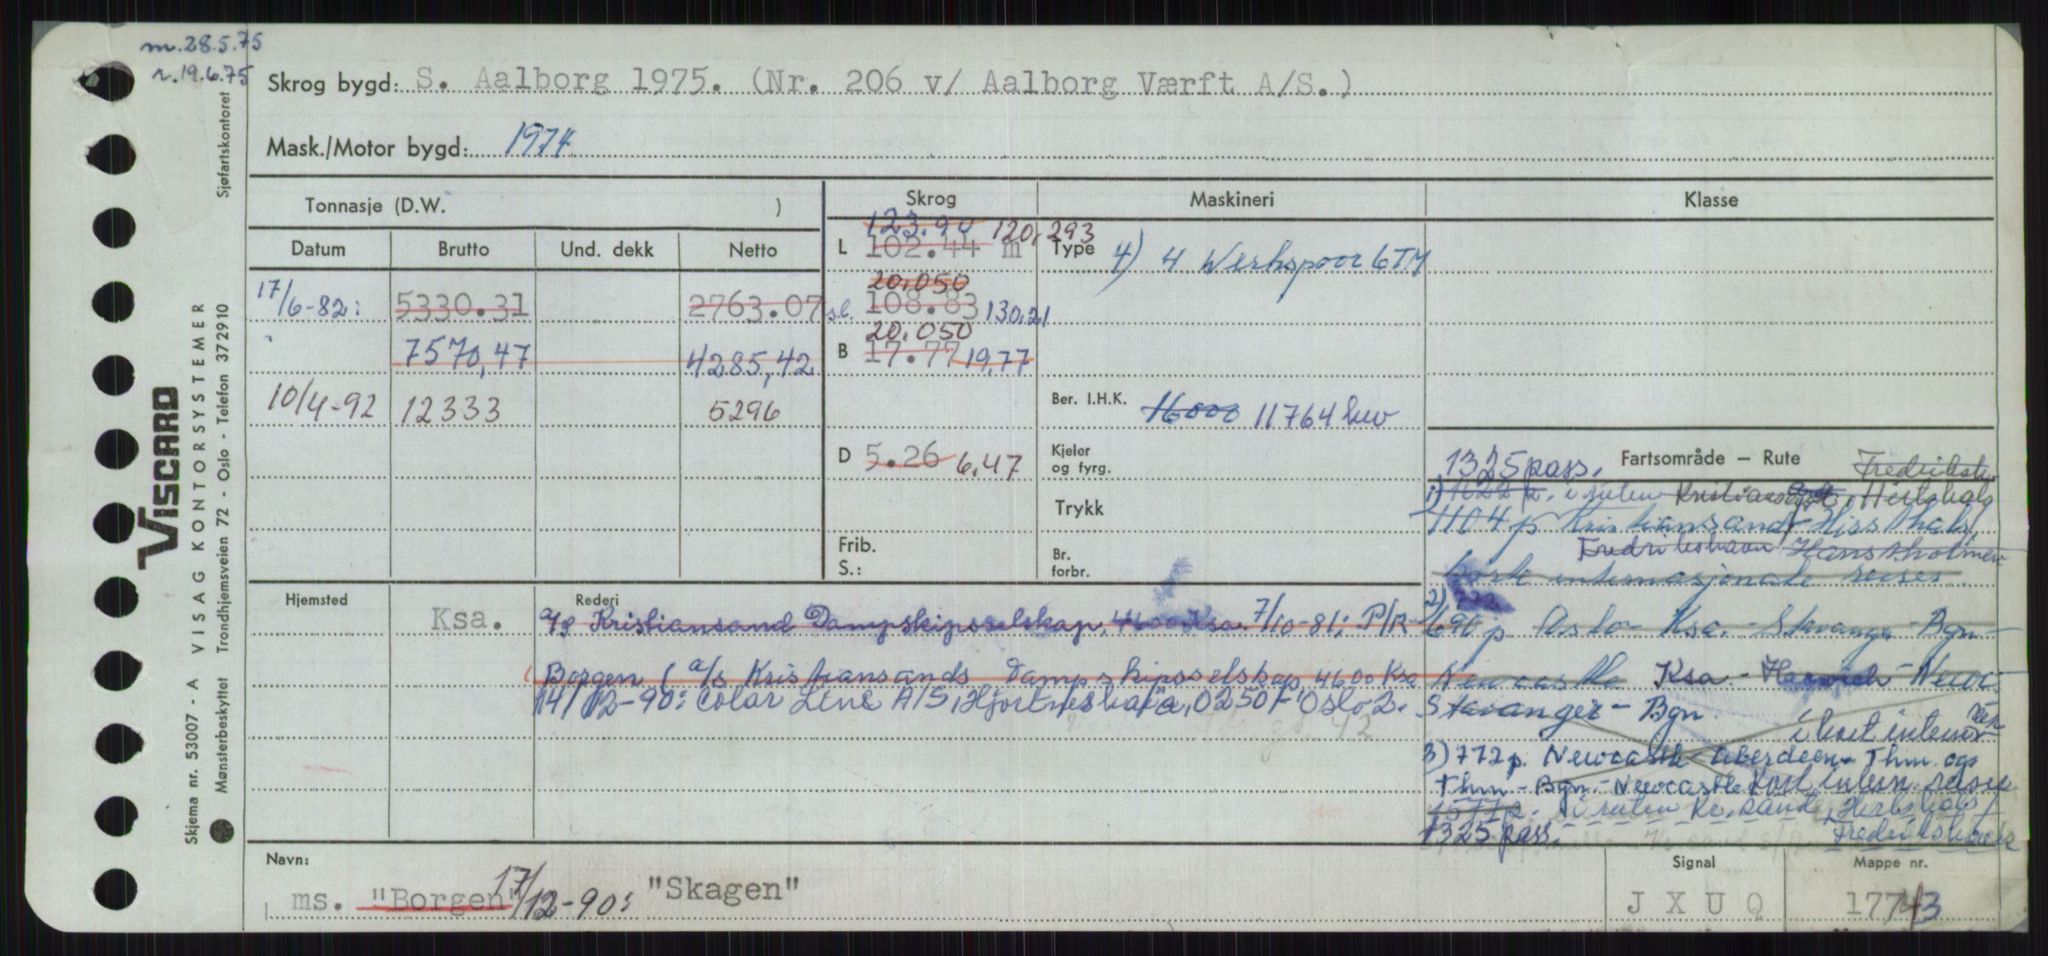 m. 28.5.75
r. 19.6.75
Skrog bygd: S. Aalborg 1975. (Nr. 206 v/ Aalborg Værft A/S.)
Mask./Motor bygd: 1974
Tonnasje (D.W. ) Skrog Maskineri Klasse
Datum Brutto Und. dekk Netto
123.90 120,293
L 102.44 m Type 4) 4 Werkspoor 6TM
20.050
17/6-82: 5330.31 2763.07 s.l. 108.83 130,21
20.050
" 7570,47 4285,42 B 17.77 19,77
10/4-92 12333 5296 Ber. I.H.K. 16000 11764 kw
D 5.26 6,47 Kjeler og fyrg.
Trykk
Frib.
S.:
Br. forbr.
1325 pass. Fartsområde – Rute
1) 1622 p. i ruten Kristiansand, Hirtshals
1104 p Kristiansand
Fredrikshavn Hanstholmen
kort internasjonale reiser
2)
690 p Oslo - Ksa. - Stavanger - Bgn -
Newcastle Ksa - Harwich - Newc.
Stavanger - Bgn. i kort intern
3) 772 p. Newcastle Aberdeen - Thm. og
Thm - Bgn. - Newcastle kort intern. reise
i ruten Kr.sand, Hirtshals /
1325 pass. Fredrikshavn
Hjemsted Ksa. Rederi
A/S Kristiansand Dampskipsselskap, 4600 Ksa. 7/10-81: P/R
Borgen (A/S Kristiansands Dampskipsselskap 4600 Ksa
14/12-90: Color Line A/S, Hjortneskaia, 0250 Oslo 2.
Navn: Signal Mappe nr.
ms. "Borgen" 17/12-90: "Skagen" JXUQ 17743
VISCARD
VISAG KONTORSYSTEMER
Skjema nr. 53007 - A
Mønsterbeskyttet Trondhjemsveien 72 - Oslo - Telefon 372910
Sjøfartskontoret